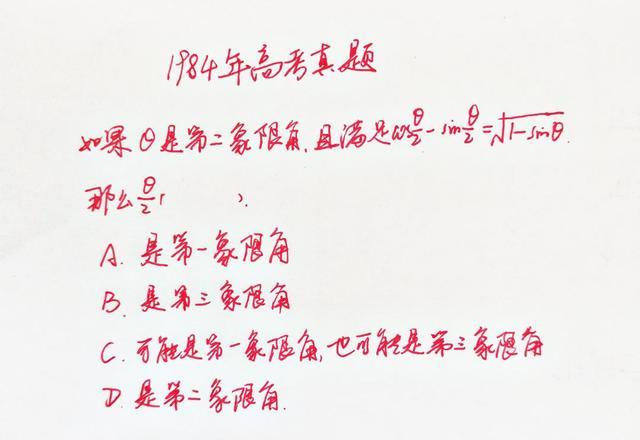 1984年高考真题
如果θ是第二象限角,且满足cosθ/2-sinθ/2=√1-sinθ.
那么θ/2( ).
A. 是第一象限角
B. 是第三象限角
C. 可能是第一象限角,也可能是第三象限角
D. 是第二象限角.